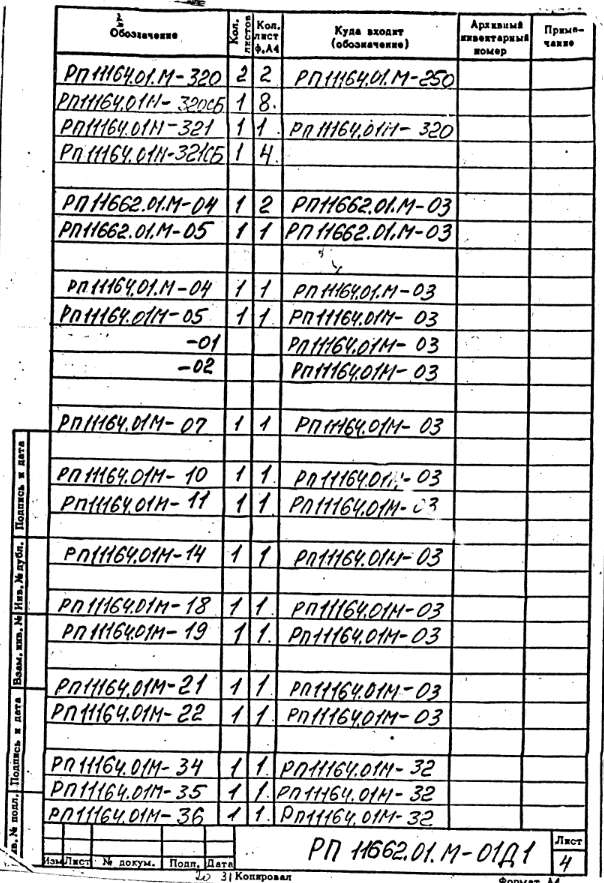 Обозначение Кол. листов Кол. лист ф.А4 Куда входит (обозначение) Архивный инвентарный номер Примечание
РП11164.01.М-320 2 2 РП11164.01.М-250
РП11164.01М-320СБ 1 8.
РП11164.01М-321 1 1 РП11164.01М-320
РП11164.01М-321СБ 1 4.
РП11662.01.М-04 1 2 РП11662.01.М-03
РП11662.01.М-05 1 1 РП11662.01.М-03
РП11164.01.М-04 1 1 РП11164.01.М-03
РП11164.01М-05 1 1. РП11164.01М-03
-01 РП11164.01М-03
-02 РП11164.01М-03
РП11164.01М-07 1 1 РП11164.01М-03
РП11164.01М-10 1 1. РП11164.01М-03
РП11164.01М-11 1 1. РП11164.01М-03
РП11164.01М-14 1 1 РП11164.01М-03
РП11164.01М-18 1 1. РП11164.01М-03
РП11164.01М-19 1 1. РП11164.01М-03
РП11164.01М-21 1 1. РП11164.01М-03
РП11164.01М-22 1 1. РП11164.01М-03
РП11164.01М-34 1 1. РП11164.01М-32
РП11164.01М-35 1 1. РП11164.01М-32
РП11164.01М-36 1 1. РП11164.01М-32
Подпись и дата
Инв. № дубл.
Взам. инв. №
Подпись и дата
№ подл.
РП 11662.01.М-01Д1
Лист
4
Изм Лист № докум. Подп. Дата
Копировал
Формат А4